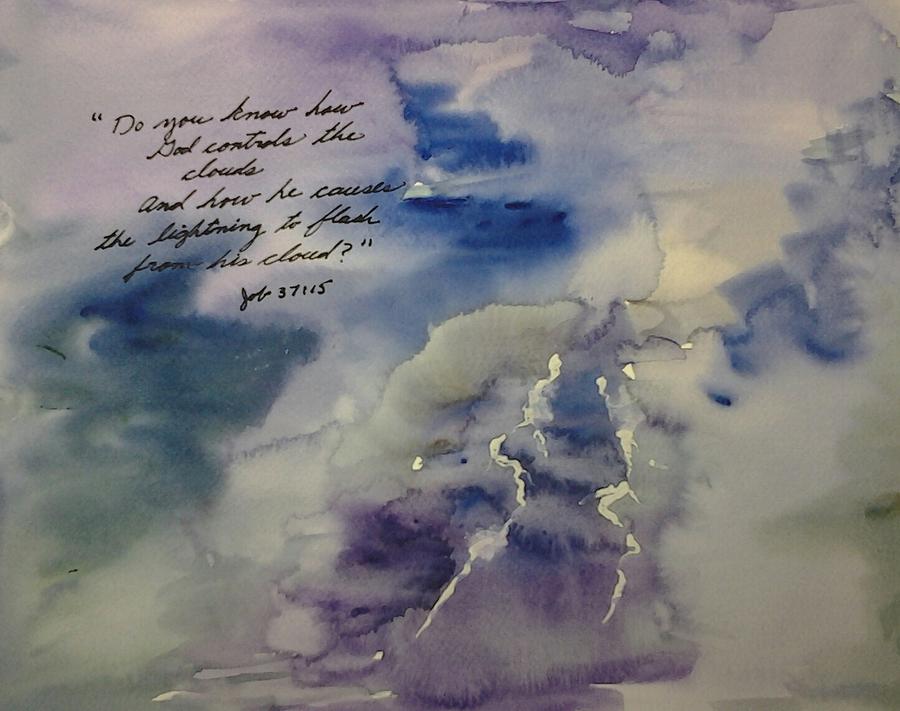 "Do you know how
God controls the
clouds
And how he causes
the lightning to flash
from his cloud?"
Job 37:15